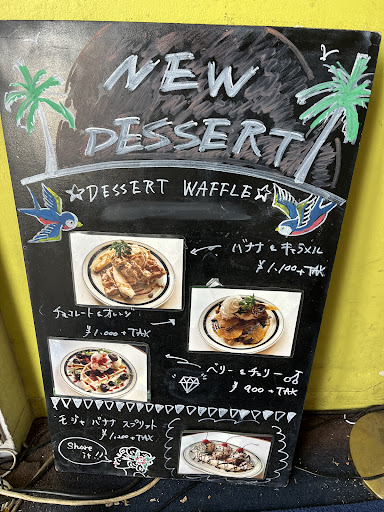 NEW
DESSERT
☆DESSERT WAFFLE☆
バナナ&キャラメル
¥1,100+TAX
チョコレート&オレンジ
¥1,000+TAX
ベリー&チェリー
¥900+TAX
モジャ バナナ スプリット
¥1,200+TAX
Share it!!